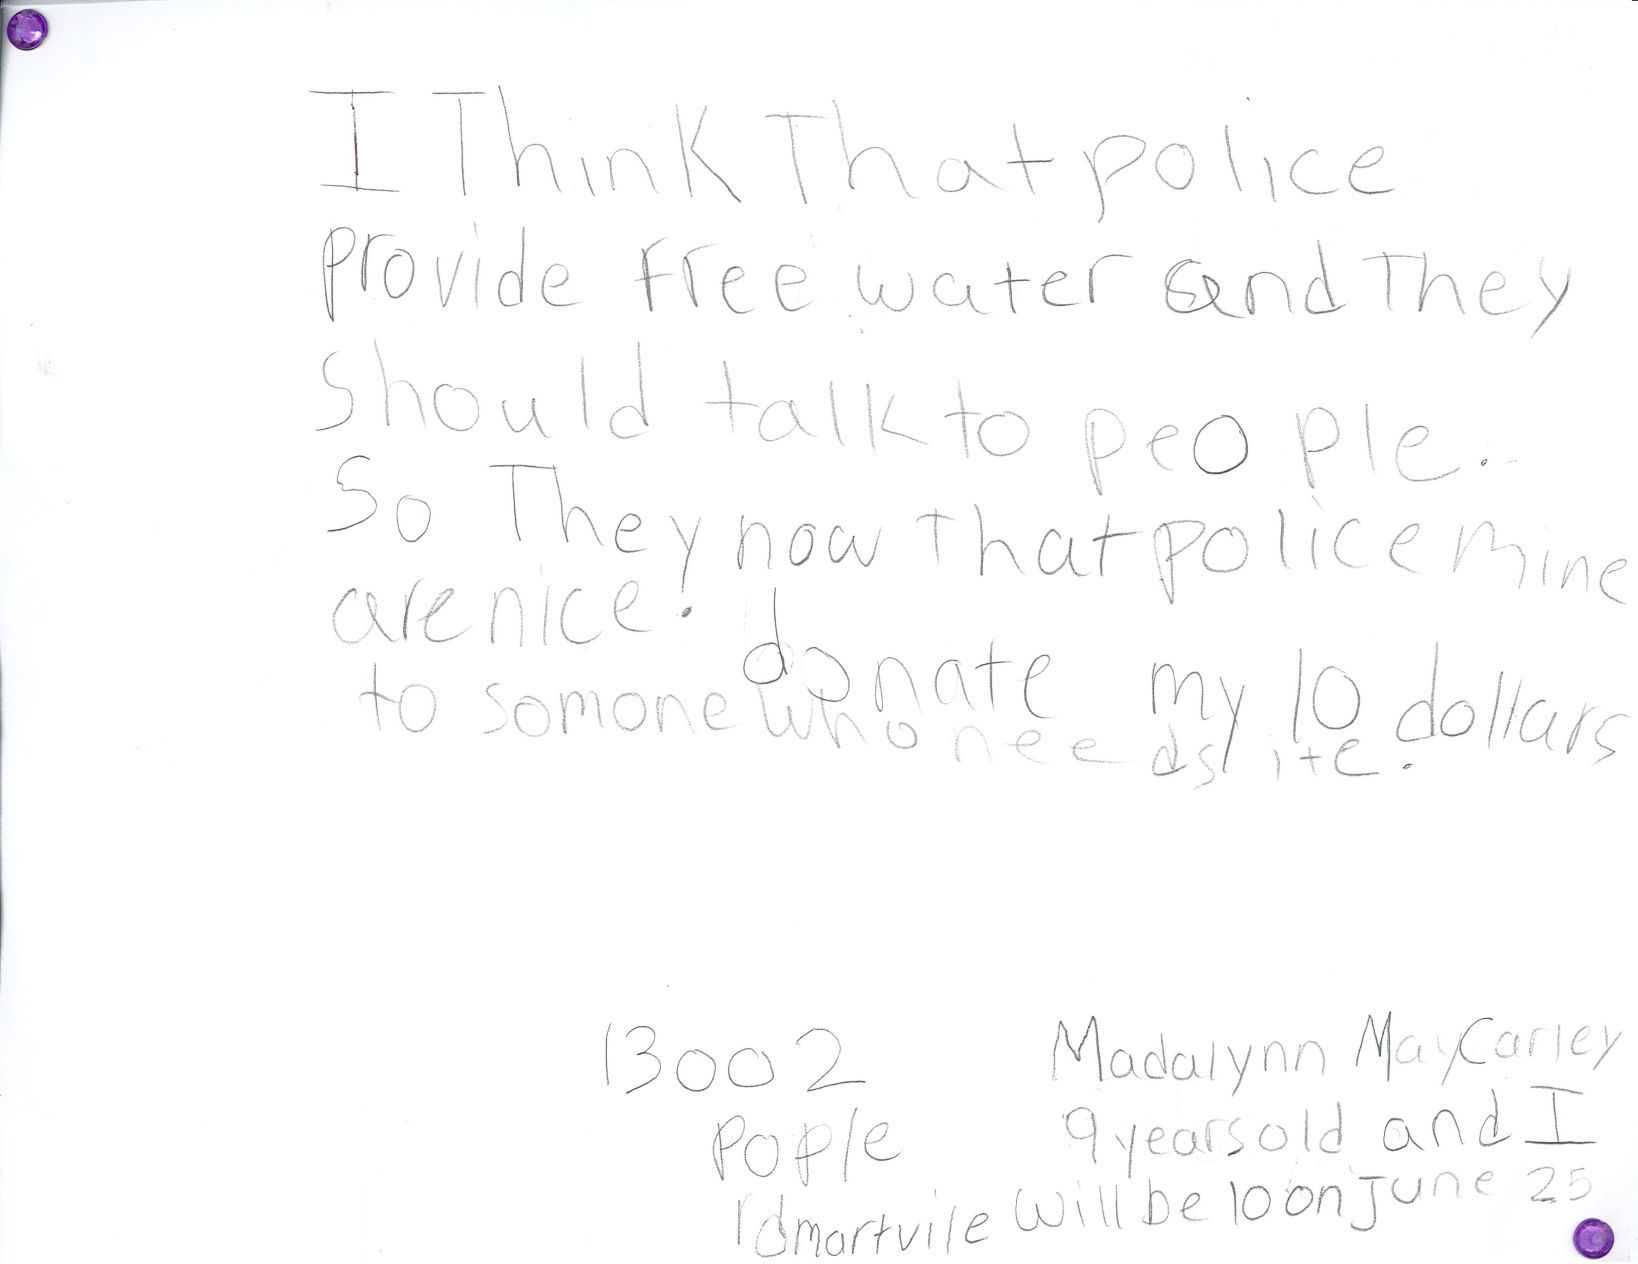 I Think That police
provide free water and They
should talk to people.
So They now that police mine
are nice.
donate my 10 dollars
to somone who needs ite.
13002
Pople
rd martvile
Madalynn May Carley
9 years old and I
will be 10 on June 25